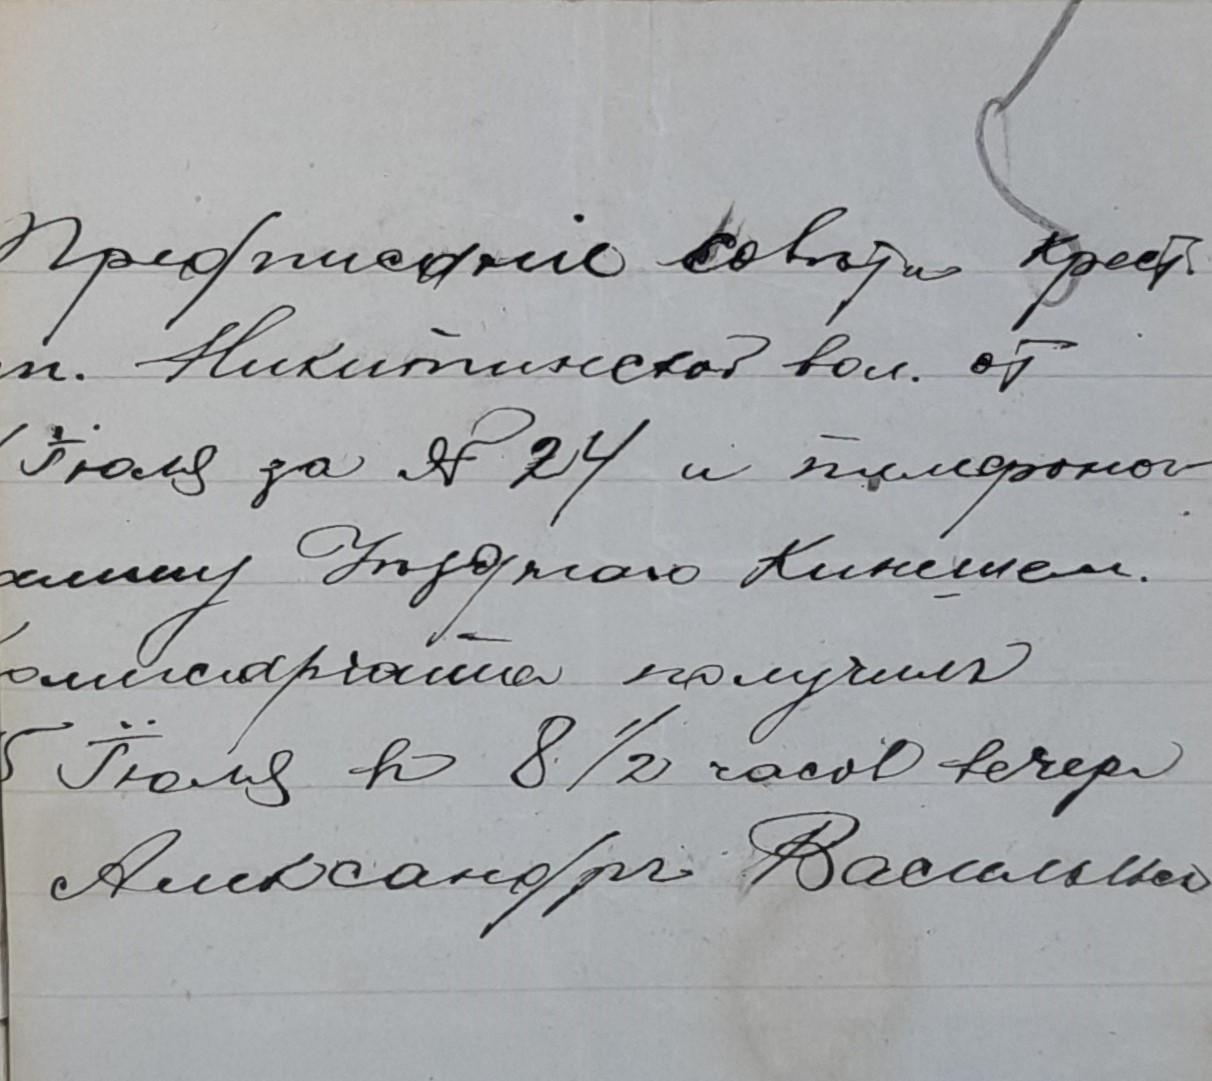 Предписаніе совѣта Крест.
п. Никитинской вол. от
Іюля за № 24 и телефоног
амму Уѣзднаго Кинешем.
омисаріата получилъ
5 Іюля в 8 1/2 часов вечера
Александръ Васильевъ